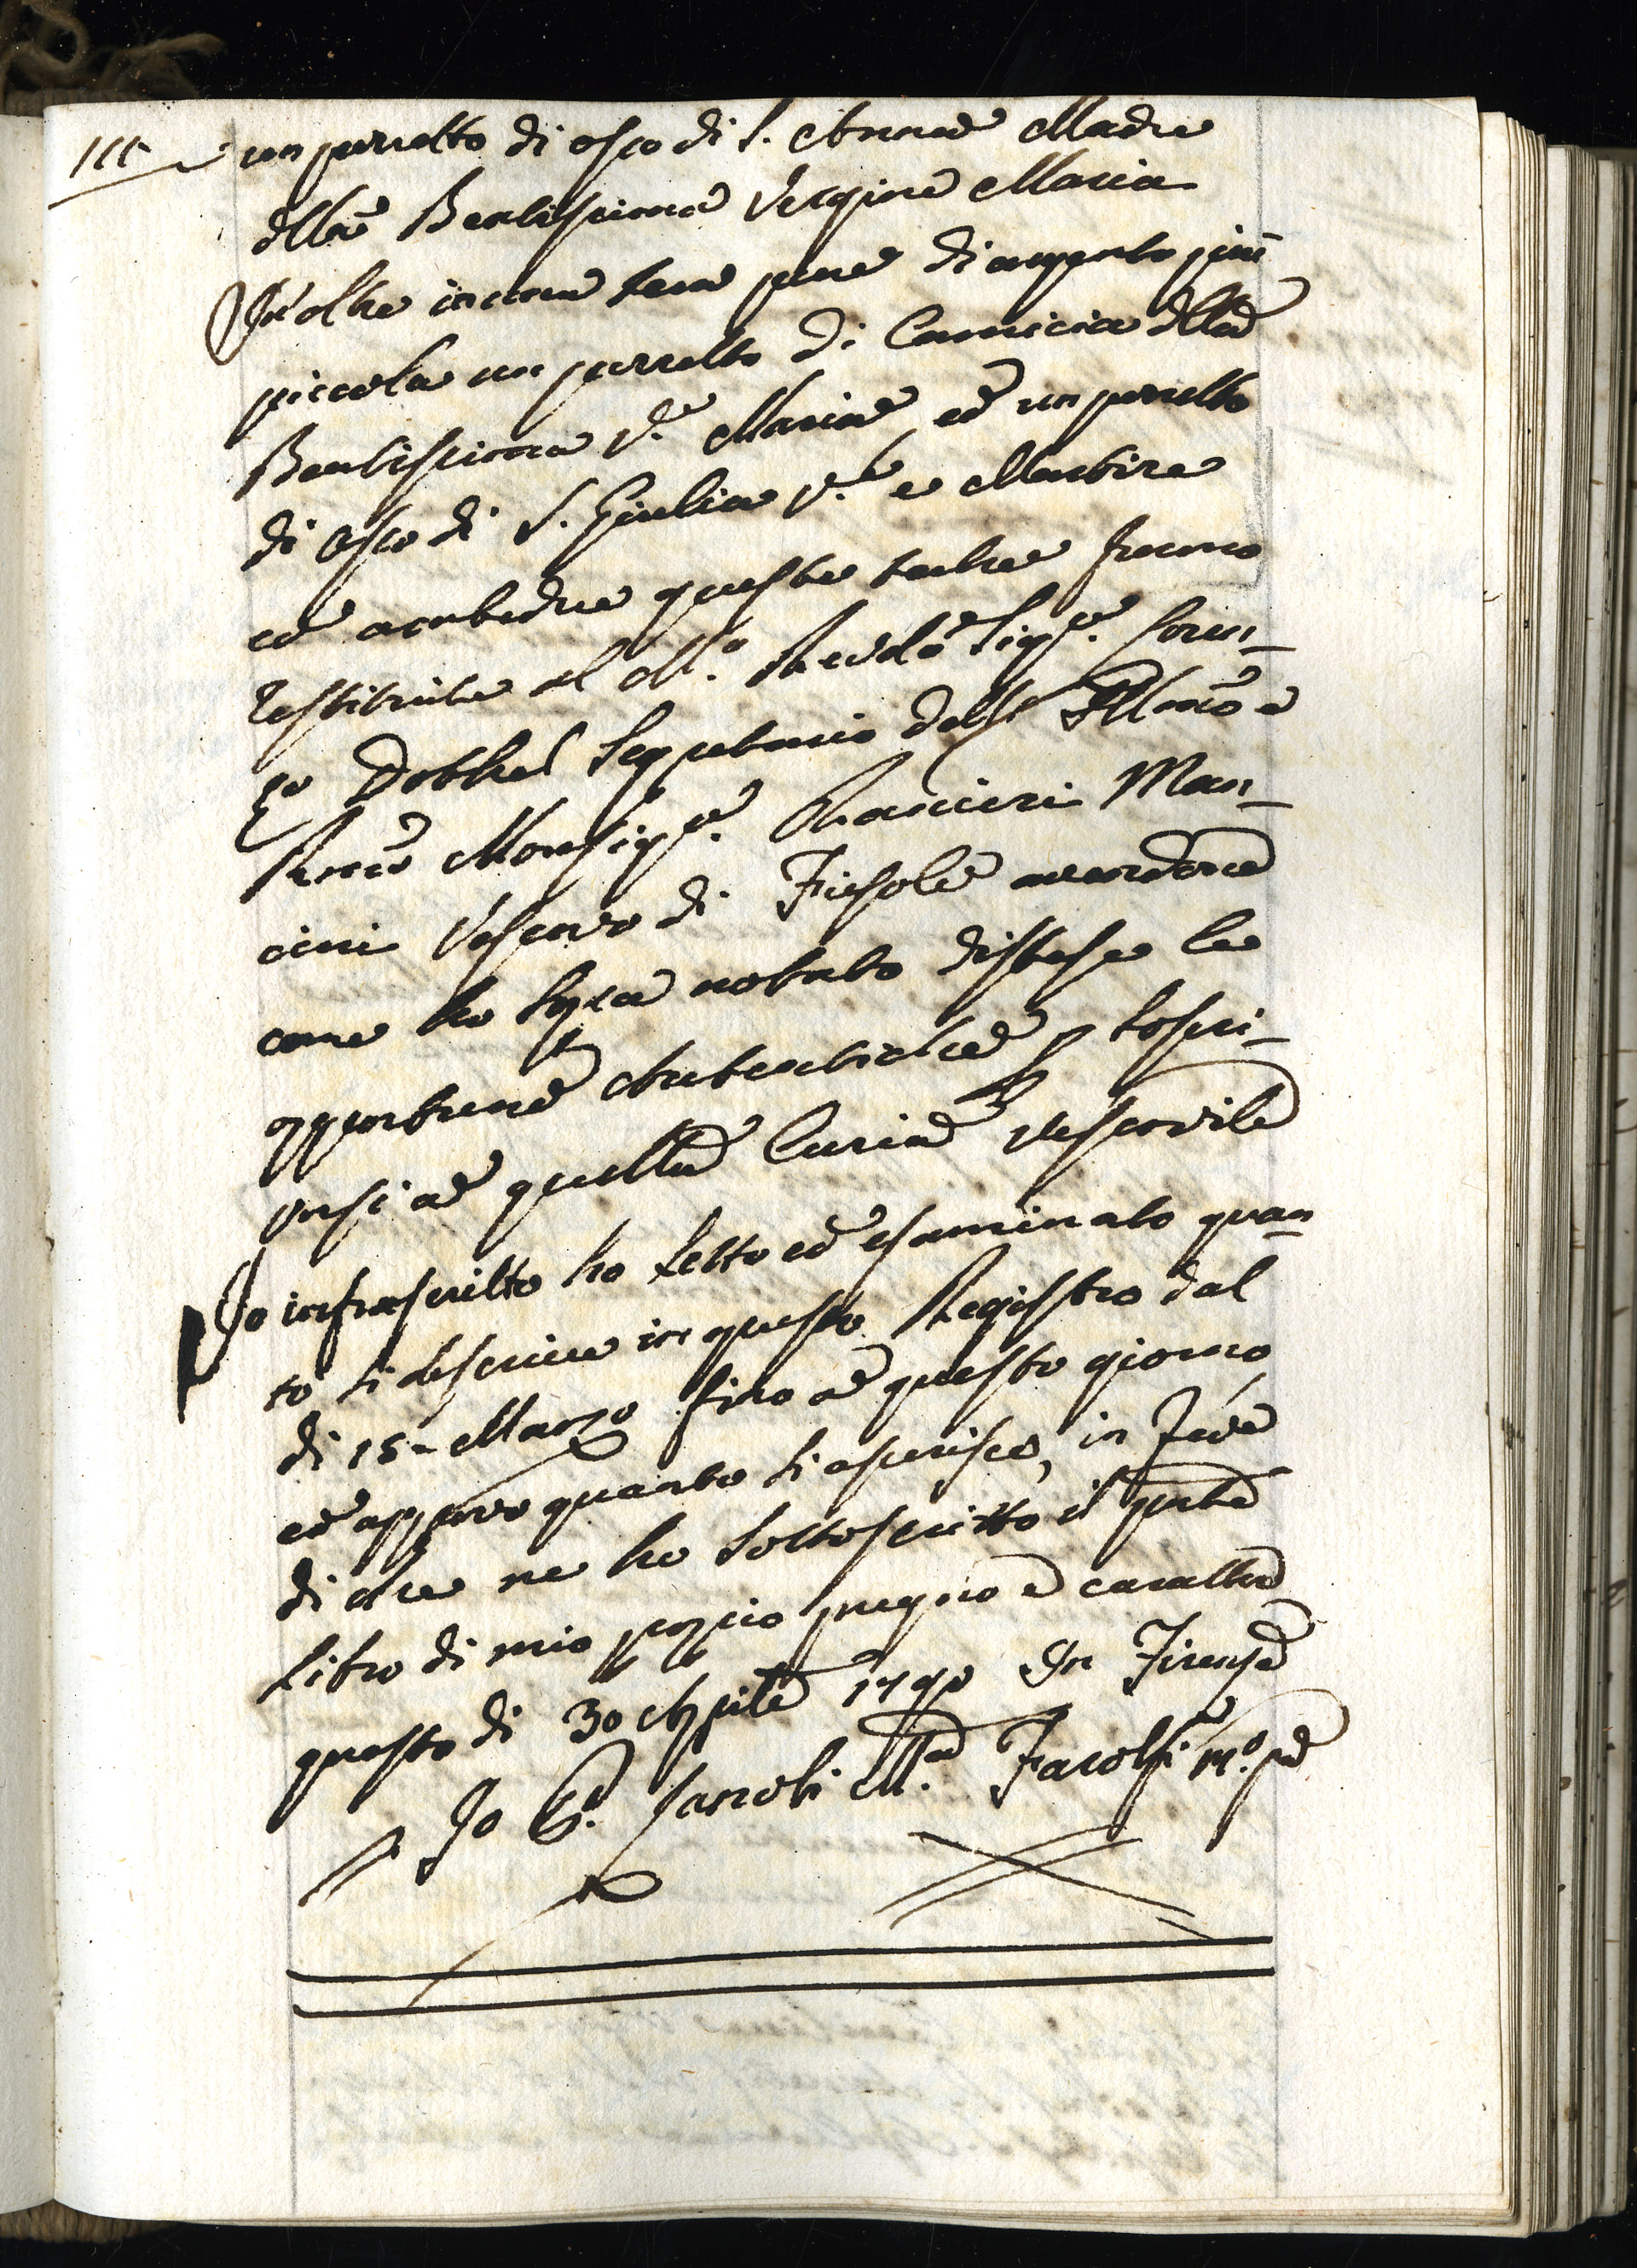 111 un pezzetto di osso di S. Anna Madre
dlla Beatissima Vergine Maria
In'oltre in una teca pure di argento più
piccola un pezzetto di Camicia dlla
Beatissima V.e Maria, ed un pezzetto
di osso di S. Giulia V.e e Martire
ed ambedue queste teche furono
restituite al M.o Revdo Sigre. Loren-
zo Dobbler Segretario dell' Illmo e
Rmo Monsigre. Ranieri Man-
cini Vescovo di Fiesole avendone
come ho sopra notato distese le
opportune Autentiche p
ad quella Curia Vescovile
Io infrascritto ho letto ed esaminato quan-
to si descrive in questo Registro dal
di 15- Marzo fino a questo giorno,
ed approvo quanto si asserisce, in fede
di che ne ho sottoscritto il pnte
Libro di mio proprio pugno e carattere
questo di 30 Aprile 1790 In Firenze
Io G. M. m.o pa